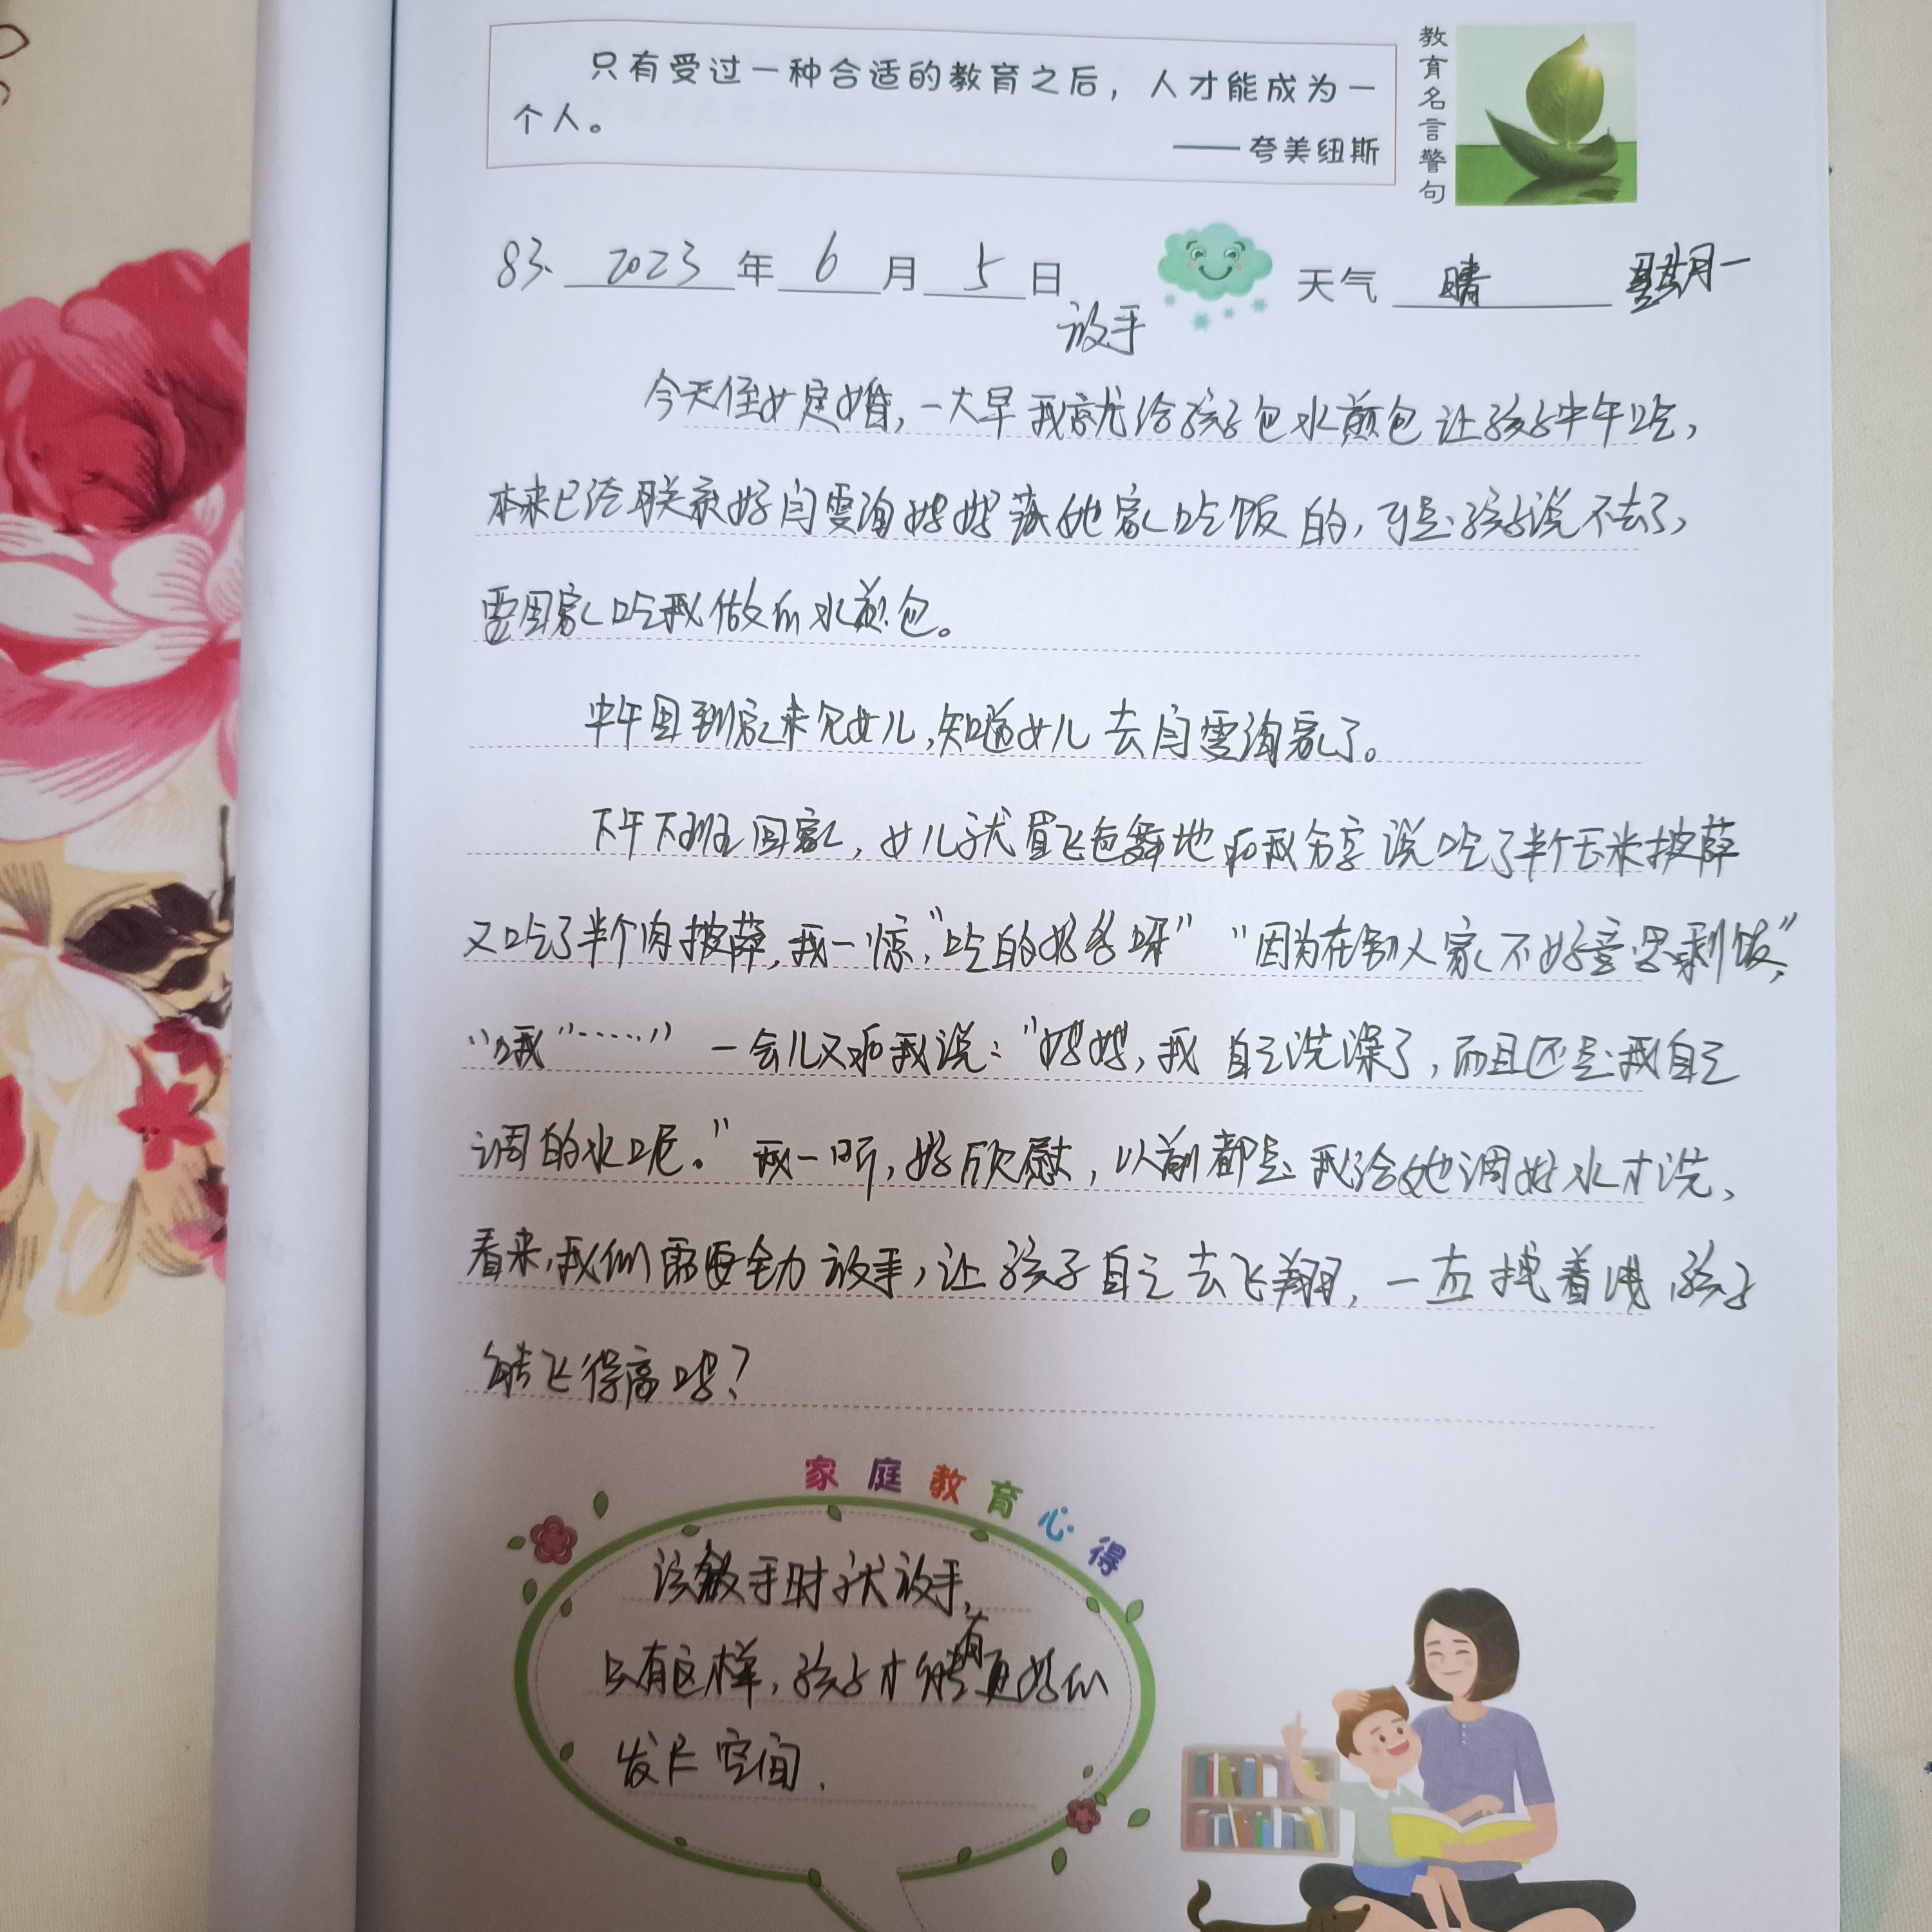 只有受过一种合适的教育之后，人才能成为一
个人。
——夸美纽斯
教育名言警句
83、2023年6月5日 天气 晴 星期一
放手
今天侄女定婚，一大早我就给孩子包水煎包让孩子中午吃，
本来已经联系好闫雯洵妈妈落她家吃饭的，可是孩子说不去了，
要回家吃我做的水煎包。
中午回到家来见女儿，知道女儿去闫雯洵家了。
下午下班回家，女儿就眉飞色舞地和我分享说吃了半个玉米披萨
又吃了半个肉披萨，我一惊，"吃的好多呀""因为在别人家不好意思剩饭，"
"哦"……" 一会儿又和我说："妈妈，我自己洗澡了，而且还是我自己
调的水呢。"我一听，好欣慰，以前都是我给她调好水才洗，
看来，我们需要全力放手，让孩子自己去飞翔，一直拽着线，孩子
能飞得高吗？
家庭教育心得
该放手时就放手，
只有这样，孩子才能有更好的
发展空间．